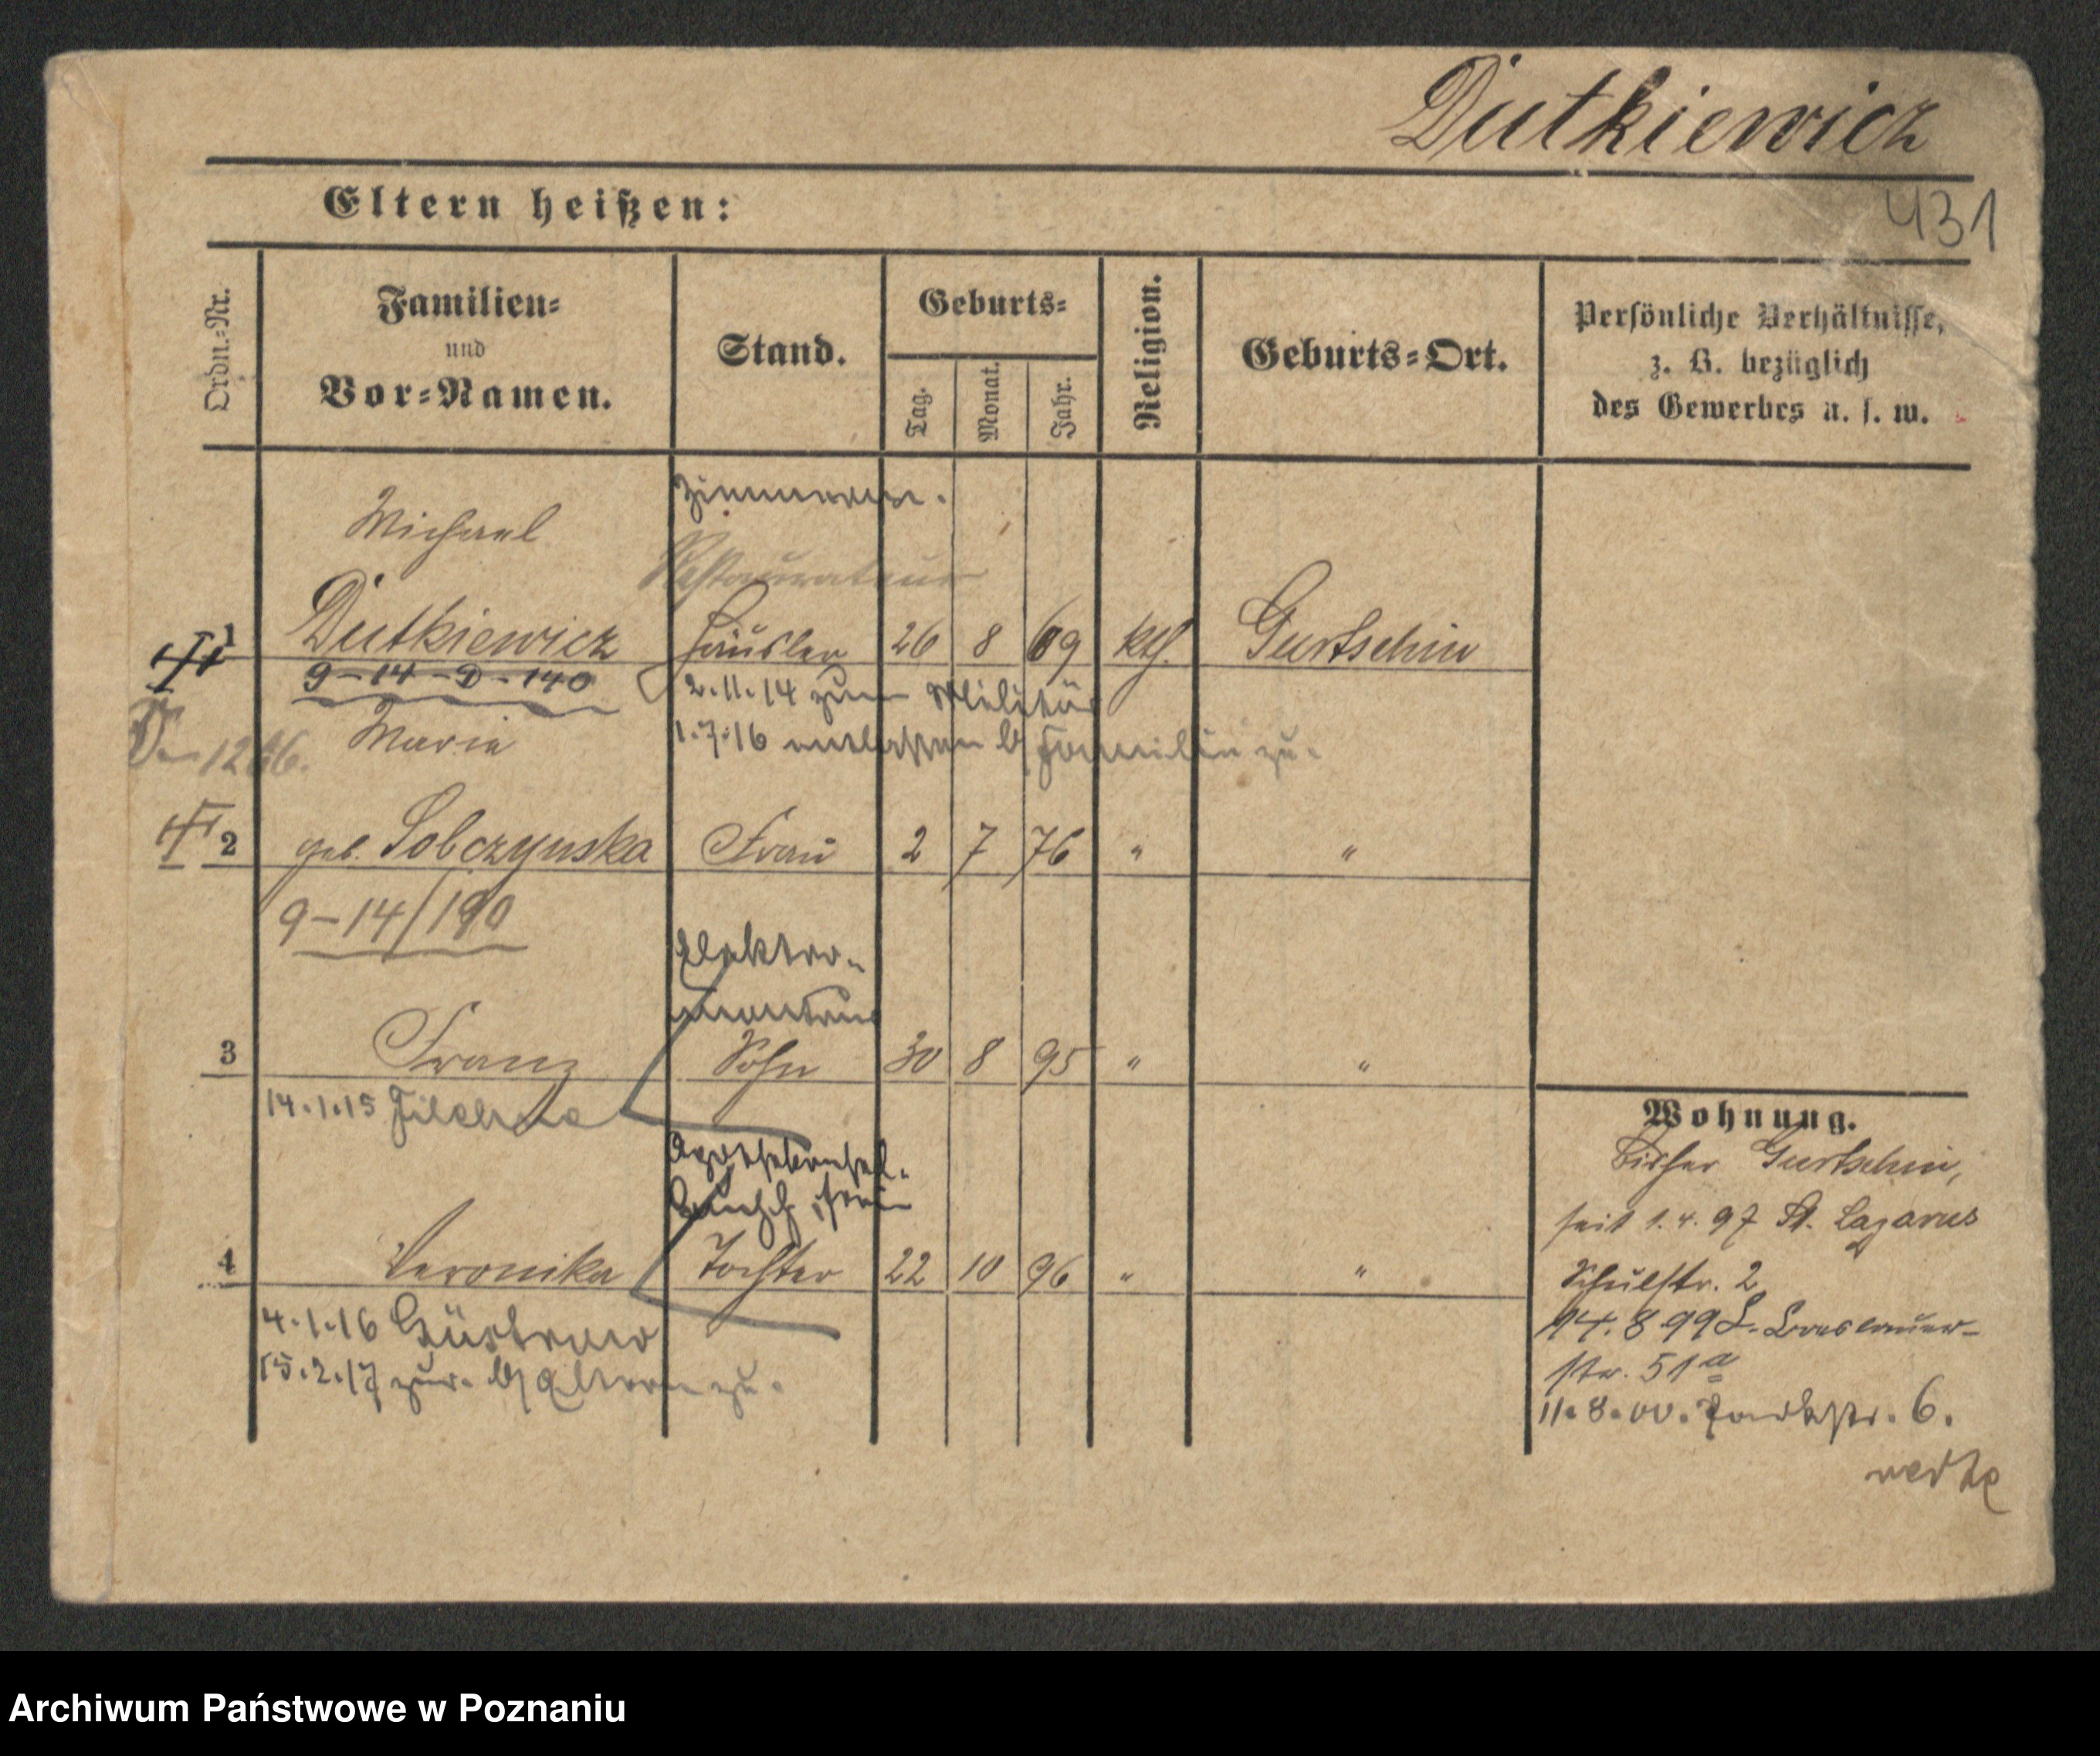 Dutkiewicz
431
Eltern heißen:
Ordn.-Nr.
Familien-
und
Vor-Namen.
Stand.
Geburts-
Tag.
Monat.
Jahr.
Religion.
Geburts-Ort.
Persönliche Verhältnisse,
z. B. bezüglich
des Gewerbes u. s. w.
Zimmerm.
Michael
Restaurateur
1 Dutkiewicz Häusler 26 8 69 kth. Gurtschin
9-14-D-140
2.11.14 zum Militär
1.7.16 entlassen b/ Familie zu.
Maria
2 geb. Sobczynska Frau 2 7 76 " "
9-14/190
Elektro-
monteur
3 Franz Sohn 30 8 95 " "
14.1.15 Filehne
4 Veronika Tochter 22 10 96 " "
4.1.16 Güstrow
15.2.17 zur. b/ Eltern zu.
Wohnung.
Bisher Gurtschin,
seit 1.4.97 St. Lazarus
Schulstr. 2
14.8 99 L. Breslauer-
str. 51a
11.8.00. Parkstr. 6.